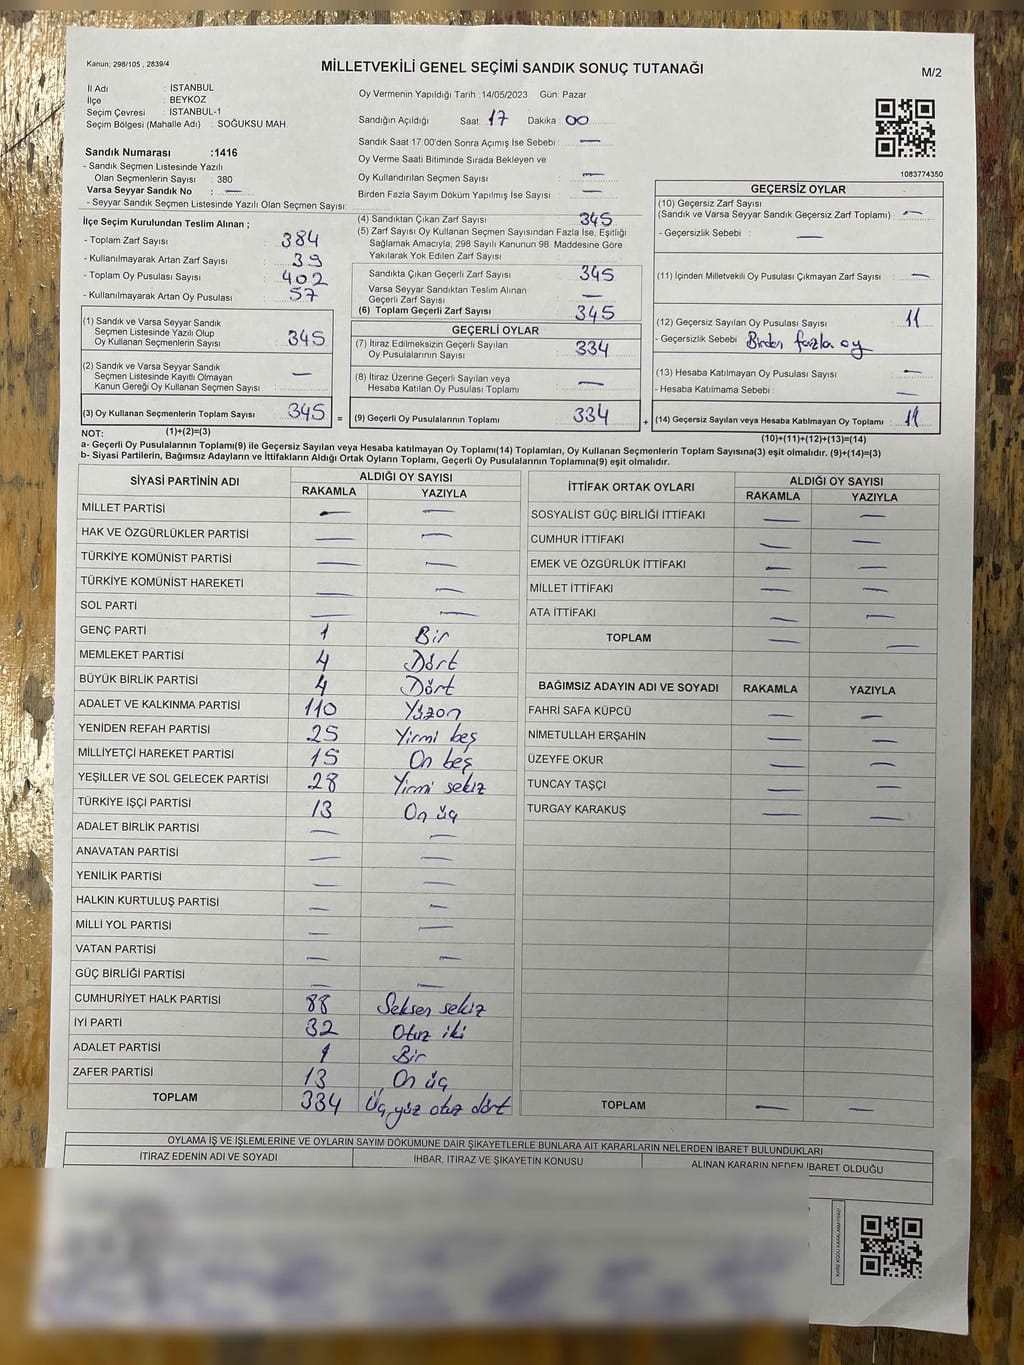 Kanun; 298/105 , 2839/4
MİLLETVEKİLİ GENEL SEÇİMİ SANDIK SONUÇ TUTANAĞI
M/2
İl Adı : İSTANBUL
İlçe : BEYKOZ
Seçim Çevresi : İSTANBUL-1
Seçim Bölgesi (Mahalle Adı) : SOĞUKSU MAH.
Sandık Numarası :1416
- Sandık Seçmen Listesinde Yazılı
Olan Seçmenlerin Sayısı : 380
Varsa Seyyar Sandık No : —
- Seyyar Sandık Seçmen Listesinde Yazılı Olan Seçmen Sayısı:
Oy Vermenin Yapıldığı Tarih :14/05/2023 Gün: Pazar
Sandığın Açıldığı Saat : 17 Dakika : 00
Sandık Saat 17:00'den Sonra Açımış İse Sebebi : —
Oy Verme Saati Bitiminde Sırada Bekleyen ve
Oy Kullandırılan Seçmen Sayısı : —
Birden Fazla Sayım Döküm Yapılmış İse Sayısı : —
1083774350
İlçe Seçim Kurulundan Teslim Alınan ;
- Toplam Zarf Sayısı : 384
- Kullanılmayarak Artan Zarf Sayısı : 39
- Toplam Oy Pusulası Sayısı : 402
- Kullanılmayarak Artan Oy Pusulası : 57
(1) Sandık ve Varsa Seyyar Sandık
Seçmen Listesinde Yazılı Olup
Oy Kullanan Seçmenlerin Sayısı : 345
(2) Sandık ve Varsa Seyyar Sandık
Seçmen Listesinde Kayıtlı Olmayan
Kanun Gereği Oy Kullanan Seçmen Sayısı : —
(3) Oy Kullanan Seçmenlerin Toplam Sayısı : 345 =
(1)+(2)=(3)
(4) Sandıktan Çıkan Zarf Sayısı : 345
(5) Zarf Sayısı Oy Kullanan Seçmen Sayısından Fazla İse, Eşitliği
Sağlamak Amacıyla, 298 Sayılı Kanunun 98. Maddesine Göre
Yakılarak Yok Edilen Zarf Sayısı :
Sandıkta Çıkan Geçerli Zarf Sayısı : 345
Varsa Seyyar Sandıktan Teslim Alınan
Geçerli Zarf Sayısı : —
(6) Toplam Geçerli Zarf Sayısı : 345
GEÇERLİ OYLAR
(7) İtiraz Edilmeksizin Geçerli Sayılan
Oy Pusulalarının Sayısı : 334
(8) İtiraz Üzerine Geçerli Sayılan veya
Hesaba Katılan Oy Pusulaları Toplamı : —
(9) Geçerli Oy Pusulalarının Toplamı : 334 +
GEÇERSİZ OYLAR
(10) Geçersiz Zarf Sayısı
(Sandık ve Varsa Seyyar Sandık Geçersiz Zarf Toplamı) : —
- Geçersizlik Sebebi : —
(11) İçinden Milletvekili Oy Pusulası Çıkmayan Zarf Sayısı : —
(12) Geçersiz Sayılan Oy Pusulası Sayısı : 11
- Geçersizlik Sebebi : Birden fazla oy
(13) Hesaba Katılmayan Oy Pusulası Sayısı : —
- Hesaba Katılmama Sebebi : —
(14) Geçersiz Sayılan veya Hesaba Katılmayan Oy Toplamı : 11
(10)+(11)+(12)+(13)=(14)
NOT:
a- Geçerli Oy Pusulalarının Toplamı(9) ile Geçersiz Sayılan veya Hesaba katılmayan Oy Toplamı(14) Toplamları, Oy Kullanan Seçmenlerin Toplam Sayısına(3) eşit olmalıdır. (9)+(14)=(3)
b- Siyasi Partilerin, Bağımsız Adayların ve İttifakların Aldığı Ortak Oyların Toplamı, Geçerli Oy Pusulalarının Toplamına(9) eşit olmalıdır.
SİYASİ PARTİNİN ADI ALDIĞI OY SAYISI
RAKAMLA YAZIYLA
MİLLET PARTİSİ — —
HAK VE ÖZGÜRLÜKLER PARTİSİ — —
TÜRKİYE KOMÜNİST PARTİSİ — —
TÜRKİYE KOMÜNİST HAREKETİ — —
SOL PARTİ — —
GENÇ PARTİ 1 Bir
MEMLEKET PARTİSİ 4 Dört
BÜYÜK BİRLİK PARTİSİ 4 Dört
ADALET VE KALKINMA PARTİSİ 110 Yüzon
YENİDEN REFAH PARTİSİ 25 Yirmi beş
MİLLİYETÇİ HAREKET PARTİSİ 15 On beş
YEŞİLLER VE SOL GELECEK PARTİSİ 28 Yirmi sekiz
TÜRKİYE İŞÇİ PARTİSİ 13 On üç
ADALET BİRLİK PARTİSİ — —
ANAVATAN PARTİSİ — —
YENİLİK PARTİSİ — —
HALKIN KURTULUŞ PARTİSİ — —
MİLLİ YOL PARTİSİ — —
VATAN PARTİSİ — —
GÜÇ BİRLİĞİ PARTİSİ — —
CUMHURİYET HALK PARTİSİ 88 Seksen sekiz
İYİ PARTİ 32 Otuz iki
ADALET PARTİSİ 1 Bir
ZAFER PARTİSİ 13 On üç
TOPLAM 334 Üç yüz otuz dört
İTTİFAK ORTAK OYLARI ALDIĞI OY SAYISI
RAKAMLA YAZIYLA
SOSYALİST GÜÇ BİRLİĞİ İTTİFAKI — —
CUMHUR İTTİFAKI — —
EMEK VE ÖZGÜRLÜK İTTİFAKI — —
MİLLET İTTİFAKI — —
ATA İTTİFAKI — —
TOPLAM — —
BAĞIMSIZ ADAYIN ADI VE SOYADI RAKAMLA YAZIYLA
FAHRİ SAFA KÜPCÜ — —
NİMETULLAH ERŞAHİN — —
ÜZEYFE OKUR — —
TUNCAY TAŞÇI — —
TURGAY KARAKUŞ — —
TOPLAM — —
OYLAMA İŞ VE İŞLEMLERİNE VE OYLARIN SAYIM DÖKÜMÜNE DAİR ŞİKAYETLERLE BUNLARA AİT KARARLARIN NELERDEN İBARET BULUNDUKLARI
İTİRAZ EDENİN ADI VE SOYADI İHBAR, İTİRAZ VE ŞİKAYETİN KONUSU ALINAN KARARIN NEDEN İBARET OLDUĞU
KARE KODU KARALAMAYINIZ!